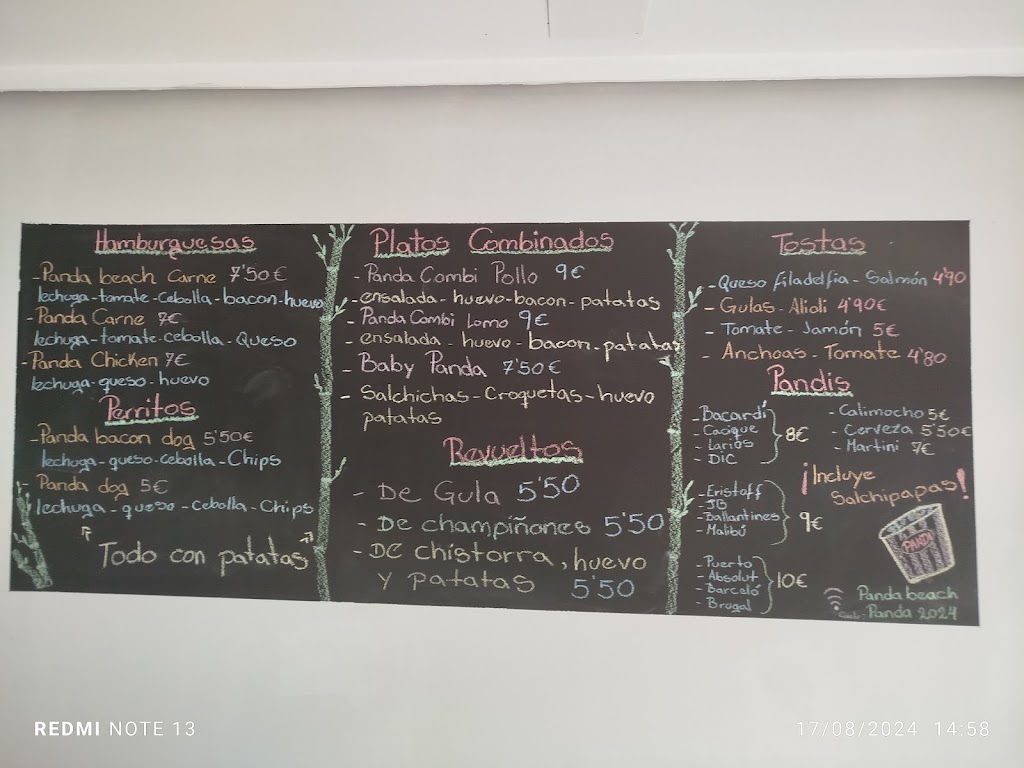 Hamburguesas
-Panda beach Carne 7'50€
lechuga-tomate-cebolla-bacon-huevo
-Panda Carne 7€
lechuga-tomate-cebolla-Queso
-Panda Chicken 7€
lechuga-queso-huevo
Perritos
-Panda bacon dog 5'50€
lechuga-queso-cebolla-Chips
-Panda dog 5€
lechuga-queso-cebolla-Chips
Todo con patatas
Platos Combinados
-Panda Combi Pollo 9€
-ensalada-huevo-bacon-patatas
-Panda Combi Lomo 9€
-ensalada-huevo-bacon-patatas
-Baby Panda 7'50€
-Salchichas-Croquetas-huevo
patatas
Revueltos
-De Gula 5'50
-De champiñones 5'50
-De chistorra, huevo
y patatas 5'50
Tostas
-Queso filadelfia-Salmón 4'90
-Gulas-Alioli 4'90€
-Tomate-Jamón 5€
-Anchoas-Tomate 4'80
Pandis
-Bacardí
-Cacique
-Larios
-DIC
8€
-Eristoff
-JB
-Ballantines
-Malibú
9€
-Puerto
-Absolut
-Barceló
-Brugal
10€
-Calimocho 5€
-Cerveza 5'50€
-Martini 7€
¡Incluye
Salchipapas!
PANDI
Panda beach
Panda 2024
REDMI NOTE 13
17/08/2024 14:58